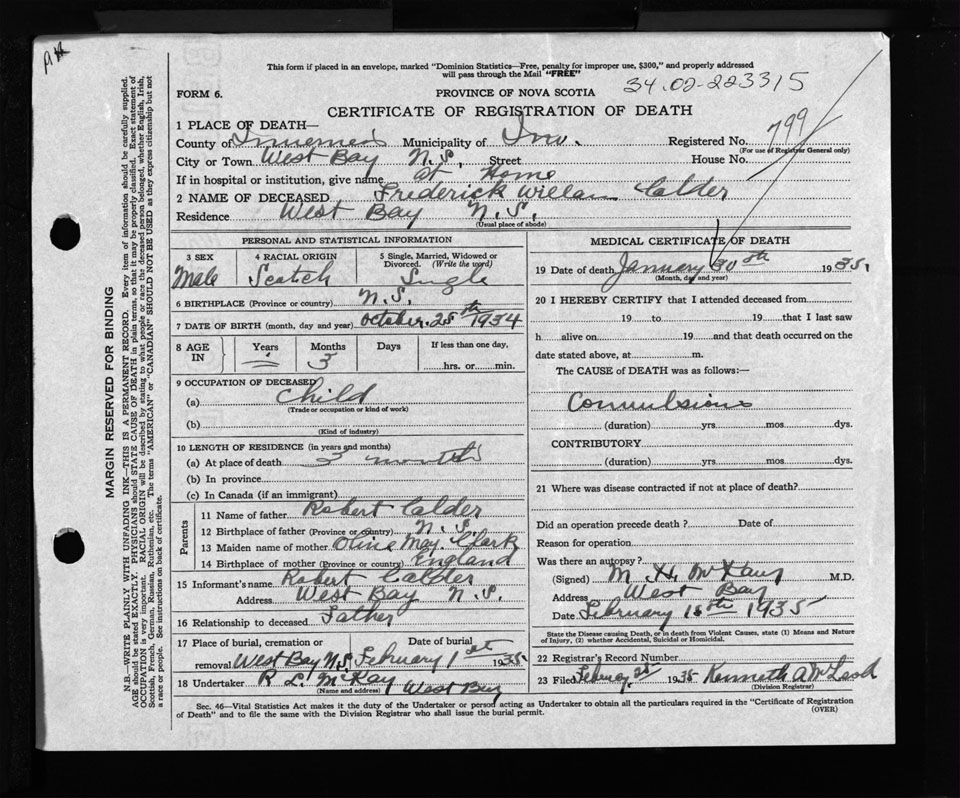 This form if placed in an envelope, marked "Dominion Statistics—Free, penalty for improper use, $300," and properly addressed
will pass through the Mail "FREE"
FORM 6.
PROVINCE OF NOVA SCOTIA
34.02-223315
CERTIFICATE OF REGISTRATION OF DEATH
799
1 PLACE OF DEATH—
County of Municipality of Inv. Registered No.
(For use of Registrar General only)
City or Town West Bay N.S. Street House No.
If in hospital or institution, give name at Home
2 NAME OF DECEASED Frederick Willam Calder
Residence West Bay N.S.
(Usual place of abode)
PERSONAL AND STATISTICAL INFORMATION
3 SEX 4 RACIAL ORIGIN 5 Single, Married, Widowed or Divorced. (Write the word)
Male Scotch Single
6 BIRTHPLACE (Province or country) N.S.
7 DATE OF BIRTH (month, day and year) October 28th 1934
8 AGE IN Years Months Days If less than one day,
3 hrs. or min.
9 OCCUPATION OF DECEASED
(a) Child
(Trade or occupation or kind of work)
(b)
(Kind of industry)
10 LENGTH OF RESIDENCE (in years and months)
(a) At place of death 3 months
(b) In province
(c) In Canada (if an immigrant)
Parents
11 Name of father Robert Calder
12 Birthplace of father (Province or country) N.S.
13 Maiden name of mother Olive May Clark
14 Birthplace of mother (Province or country) England
15 Informant's name Robert Calder
Address West Bay N.S.
16 Relationship to deceased Father
17 Place of burial, cremation or Date of burial
removal West Bay N.S. February 1st 1935
18 Undertaker R L. McKay West Bay
(Name and address)
MEDICAL CERTIFICATE OF DEATH
19 Date of death January 30th 1935.
(Month, day and year)
20 I HEREBY CERTIFY that I attended deceased from
19 to 19 that I last saw
h alive on 19 and that death occurred on the
date stated above, at m.
The CAUSE of DEATH was as follows:—
Convulsions
(duration) yrs. mos dys.
CONTRIBUTORY
(duration) yrs. mos dys.
21 Where was disease contracted if not at place of death?
Did an operation precede death? Date of
Reason for operation
Was there an autopsy?
(Signed) M. H. M.D.
Address West Bay
Date February 1935
State the Disease causing Death, or in death from Violent Causes, state (1) Means and Nature
of Injury, (2) whether Accidental, Suicidal or Homicidal.
22 Registrar's Record Number
23 Filed February 1935 Kenneth A McLeod
(Division Registrar)
Sec. 46—Vital Statistics Act makes it the duty of the Undertaker or person acting as Undertaker to obtain all the particulars required in the "Certificate of Registration
of Death" and to file the same with the Division Registrar who shall issue the burial permit.
(OVER)
MARGIN RESERVED FOR BINDING
N.B.—WRITE PLAINLY WITH UNFADING INK—THIS IS A PERMANENT RECORD. Every item of information should be carefully supplied.
AGE should be stated EXACTLY. PHYSICIANS should STATE CAUSE OF DEATH in plain terms, so that it may be properly classified. Exact statement of
OCCUPATION is very important. RACIAL ORIGIN will be described by stating to what people or race the deceased person belonged, whether English, Irish,
Scottish, French, German, Russian, Ruthenian, etc. The terms "AMERICAN" or "CANADIAN" SHOULD NOT BE USED as they express citizenship but not
a race or people. See instructions on back of certificate.